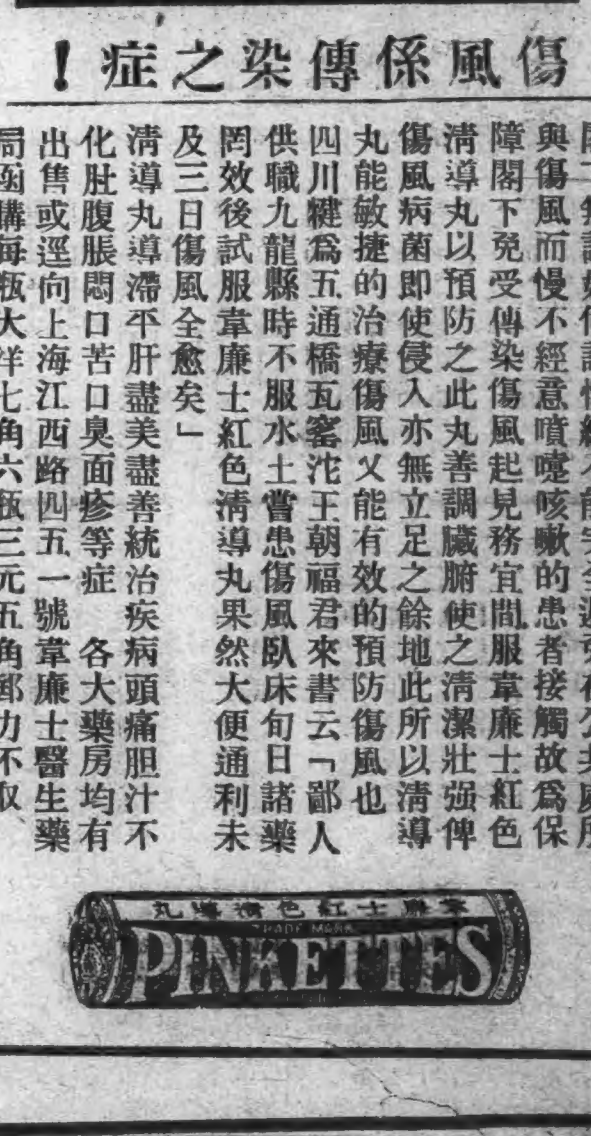 傷風係傳染之症!
與傷風而慢不經意噴嚏咳嗽的患者接觸故爲保
障閣下免受傳染傷風起見務宜間服韋廉士紅色
淸導丸以預防之此丸善調臟腑使之淸潔壯强俾
傷風病菌即使侵入亦無立足之餘地此所以淸導
丸能敏捷的治療傷風又能有效的預防傷風也
四川犍爲五通橋瓦窰沱王朝福君來書云「鄙人
供職九龍縣時不服水土嘗患傷風臥床旬日諸藥
罔效後試服韋廉士紅色淸導丸果然大便通利未
及三日傷風全愈矣」
淸導丸導滯平肝盡美盡善統治疾病頭痛胆汁不
化肚腹脹悶口苦口臭面疹等症 各大藥房均有
出售或逕向上海江西路四五一號韋廉士醫生藥
局函購每瓶大洋七角六瓶三元五角郵力不取
韋廉士紅色淸導丸
TRADE MARK
PINKETTES